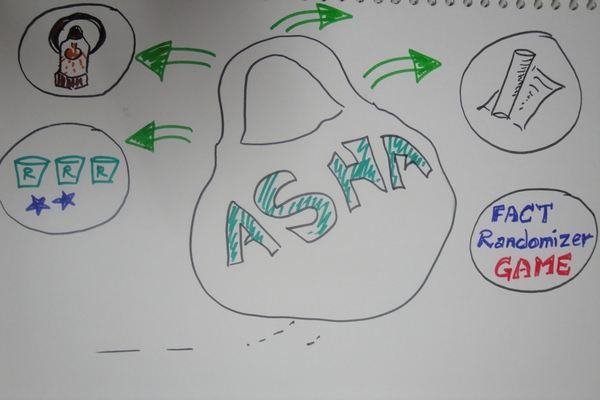 R R R
ASHA
FACT
Randomizer
GAME